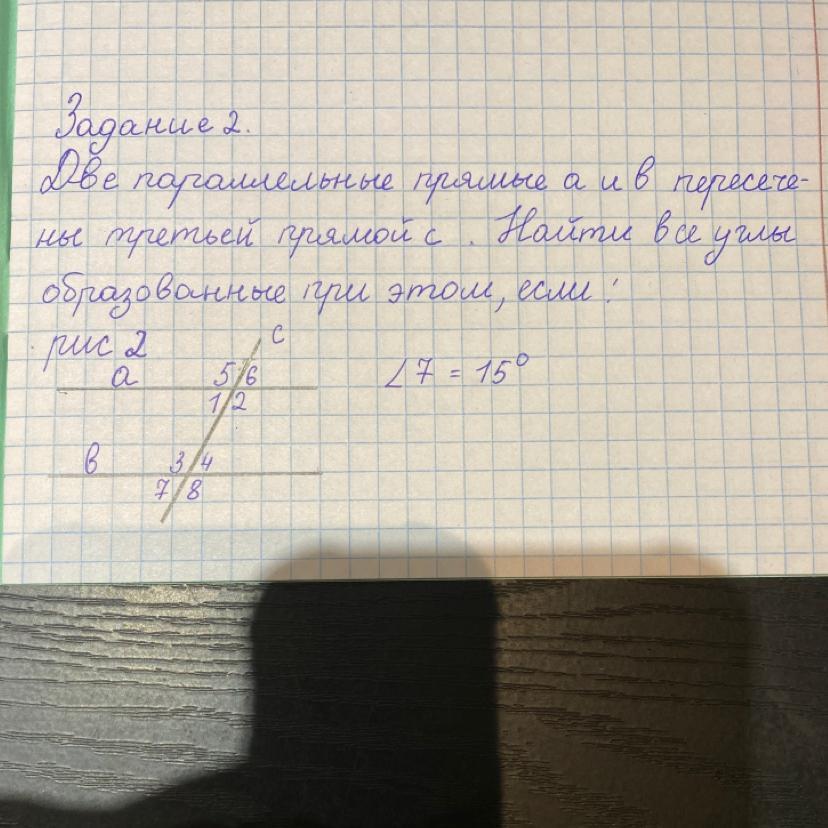 Задание 2.
Две параллельные прямые а и в пересече-
ны третьей прямой с. Найти все углы
образованные при этом, если:
рис 2
с
а
5 6
∠7 = 15°
1 2
в
3 4
7 8